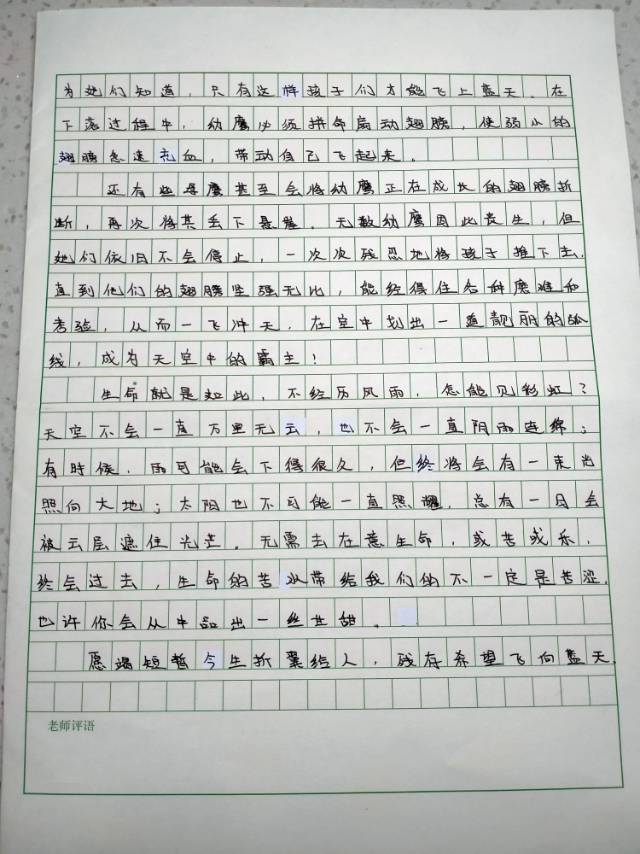 为她们知道，只有这样孩子们才能飞上蓝天。在
下落过程中，幼鹰必须拼命扇动翅膀，使弱小的
翅膀急速充血，带动自己飞起来。
还有些母鹰甚至会将幼鹰正在成长的翅膀折
断，再次将其丢下悬崖。无数幼鹰因此丧生，但
她们依旧不会停止，一次次残忍地将孩子推下去，
直到他们的翅膀坚强无比，能经得住各种磨难和
考验，从而一飞冲天，在空中划出一道靓丽的弧
线，成为天空中的霸主！
生命就是如此，不经历风雨，怎能见彩虹？
天空不会一直万里无云，也不会一直阴雨连绵；
有时候，雨可能会下得很久，但终将会有一束光
照向大地；太阳也不可能一直照耀，总有一日会
被云层遮住光芒。无需去在意生命，或苦或乐，
终会过去，生命的苦难带给我们的不一定是苦涩，
也许你会从中品出一丝甘甜。
愿竭短暂今生折翼给人，残存希望飞向蓝天
老师评语